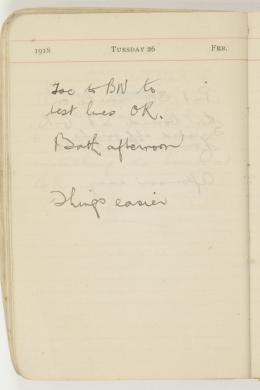 1918 TUESDAY 26 FEB.
to BN to
test lines OK.
Bath afternoon
Things easier